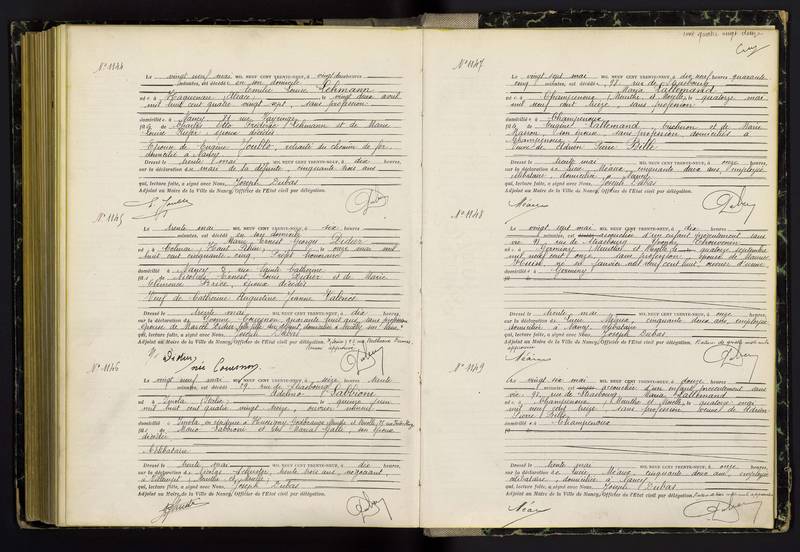 mil quatre vingt douze
N° 1144
Le vingt neuf mai MIL NEUF CENT TRENTE-NEUF, à vingt deux heures
minutes, est décédé en son domicile
Emilie Louise Lehmann
né e à Haguenau (Alsace) le vingt deux avril
mil huit cent quatre vingt sept, sans profession
domicilié e à Nancy, rue
fille de Charles Otto Frédéric Lehmann et de Marie
Louise époux décédés
Epouse de Eugène Joublo, retraité du chemin de fer,
domicilié à Nancy
Dressé le trente mai MIL NEUF CENT TRENTE-NEUF, à dix heures,
sur la déclaration de mari de la défunte, cinquante trois ans
qui, lecture faite, a signé avec Nous, Joseph Dubas
Adjoint au Maire de la Ville de Nancy, Officier de l'Etat civil par délégation.
N° 1145
Le trente mai MIL NEUF CENT TRENTE-NEUF, à dix heures
minutes, est décédé en son domicile
Marie Ernest Georges Didier
né à Colmar (Haut Rhin) le onze mai mil
huit cent cinquante cinq, Préfet honoraire
domicilié à Nancy 3, rue Sainte Catherine
fils de Nicolas Ernest Louis Didier et de Marie
Clémence Brice, époux décédés
Veuf de Catherine Augustine Jeanne Valence
Dressé le trente mai MIL NEUF CENT TRENTE-NEUF, à dix heures,
sur la déclaration de Yvonne Cournon quarante huit ans, sans profession
épouse de Marcel Didier, belle fille du défunt, domiciliés à Neuilly sur Seine
qui, lecture faite, a signé avec Nous, Joseph Dubas
Adjoint au Maire de la Ville de Nancy, Officier de l'Etat civil par délégation.
Y. Didier
née Cournon
N° 1146
Le vingt neuf mai MIL NEUF CENT TRENTE-NEUF, à seize heures trente
minutes, est décédé 29, rue de Strasbourg
Adelmo Sabbioni
né à Imola (Italie) le quinze juin
mil huit cent quatre vingt treize, ouvrier mineur
domicilié à Imola, en résidence à Hussigny Godbrange (Meurthe et Moselle)
fils de Mario Sabbioni et de Maria Galli, son épouse
décédés
Célibataire
Dressé le trente mai MIL NEUF CENT TRENTE-NEUF, à dix heures,
sur la déclaration de Nicolas Schuster, trente trois ans, négociant,
à Villerupt (Meurthe et Moselle)
qui, lecture faite, a signé avec Nous, Joseph Dubas
Adjoint au Maire de la Ville de Nancy, Officier de l'Etat civil par délégation.
N° 1147
Le vingt sept mai MIL NEUF CENT TRENTE-NEUF, à dix neuf heures quarante
cinq minutes, est décédé 91, rue de Strasbourg
Maria Lallemand
né e à Champenoux (Meurthe et Moselle) le quatorze mai
mil neuf cent treize, sans profession
domicilié e à Champenoux
fille de Eugène Lallemand, et de Marie
son épouse, sans profession, domiciliés à
Champenoux
Veuve de Adrien Pierre Bille
Dressé le trente mai MIL NEUF CENT TRENTE-NEUF, à onze heures,
sur la déclaration de Lucie Méaux, cinquante deux ans, employée
célibataire, domiciliée à Nancy
qui, lecture faite, a signé avec Nous, Joseph Dubas
Adjoint au Maire de la Ville de Nancy, Officier de l'Etat civil par délégation.
Méaux
N° 1148
Le vingt sept mai MIL NEUF CENT TRENTE-NEUF, à dix heures
minutes, est accouchée d'un enfant présentement sans
vie 91, rue de Strasbourg, Yvonne
née à Germiny (Meurthe et Moselle) le onze septembre
mil neuf cent onze, sans profession, épouse de Maurice
domicilié à Germiny
Dressé le trente mai MIL NEUF CENT TRENTE-NEUF, à onze heures,
sur la déclaration de Lucie Méaux, cinquante deux ans, employée
domiciliée à Nancy, célibataire
qui, lecture faite, a signé avec Nous, Joseph Dubas
Adjoint au Maire de la Ville de Nancy, Officier de l'Etat civil par délégation.
Méaux
N° 1149
Le vingt six mai MIL NEUF CENT TRENTE-NEUF, à douze heures
minutes, est accouchée d'un enfant présentement sans
vie, 91, rue de Strasbourg, Maria Lallemand
né e à Champenoux (Meurthe et Moselle) le quatorze mai
mil neuf cent treize, sans profession, veuve de Adrien
Pierre Bille
domicilié e à Champenoux
Dressé le trente mai MIL NEUF CENT TRENTE-NEUF, à onze heures,
sur la déclaration de Lucie Méaux, cinquante deux ans, employée
célibataire, domiciliée à Nancy
qui, lecture faite, a signé avec Nous, Joseph Dubas
Adjoint au Maire de la Ville de Nancy, Officier de l'Etat civil par délégation.
Méaux